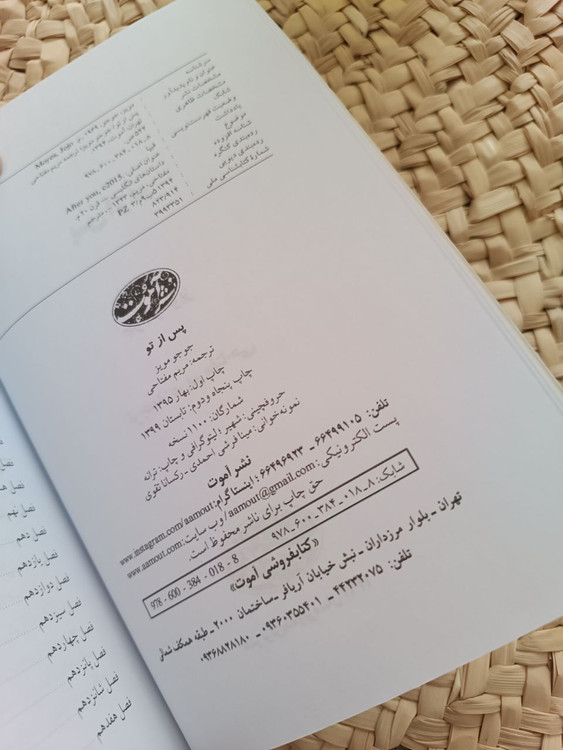 سرشناسه
عنوان و نام پدیدآور
مشخصات نشر
مشخصات ظاهری
شابک
وضعیت فهرست‌نویسی
یادداشت
موضوع
شناسه افزوده
رده‌بندی کنگره
رده‌بندی دیویی
شمارهٔ کتابشناسی ملی
مویز، جوجو، ۱۹۶۹ - م. Moyes, Jojo
پس از تو / جوجو مویز؛ ترجمه مریم مفتاحی
تهران: آموت، ۱۳۹۴
فیپا
عنوان اصلی: After you, c2015.
داستان‌های انگلیسی -- قرن ۲۱ م.
مفتاحی، مریم، ۱۳۴۳ - مترجم
PZ
۸۲۳/۹۱۴
۳۹۹۳۳۵۱
نشر آموت
پس از تو
جوجو مویز
ترجمه: مریم مفتاحی
چاپ اول: بهار ۱۳۹۵
چاپ پنجاه و دوم: تابستان ۱۳۹۹
شمارگان: ۱۱۰۰ نسخه
حروفچینی: شهیر؛ لیتوگرافی و چاپ: ترانه
نمونه‌خوانی: مینا فرشی احمدی - رکسانا تقوی
نشر آموت
تلفن: ۶۶۴۹۹۱۰۵ - ۶۶۴۹۶۹۲۳؛ اینستاگرام: www.instagram.com/aamout
پست الکترونیکی: aamout@gmail.com/ وب سایت: www.aamout.com
حق چاپ برای ناشر محفوظ است.
شابک: ۸-۰۱۸-۳۸۴-۶۰۰-۹۷۸
978 - 600 - 384 - 018 - 8
«کتابفروشی آموت»
تهران - بلوار مرزداران - نبش خیابان آریافر - ساختمان ۲۰۰۰ - طبقه همکف شمالی
تلفن: ۴۴۲۳۲۰۷۵ - ۰۹۳۶۰۳۵۵۴۰۱ - ۰۹۳۶۸۸۲۸۱۸۰
فصل نهم
فصل دهم
فصل یازدهم
فصل دوازدهم
فصل سیزدهم
فصل چهاردهم
فصل پانزدهم
فصل شانزدهم
فصل هفدهم